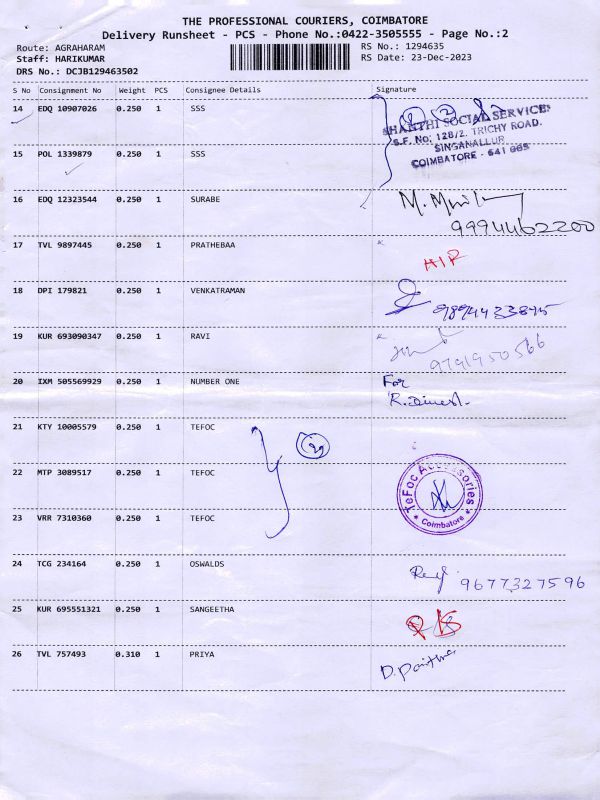 THE PROFESSIONAL COURIERS, COIMBATORE
Delivery Runsheet - PCS - Phone No.:0422-3505555 - Page No.:2
Route: AGRAHARAM RS No.: 1294635
Staff: HARIKUMAR RS Date: 23-Dec-2023
DRS No.: DCJB129463502
S No Consignment No Weight PCS Consignee Details Signature
14 EDQ 10907026 0.250 1 SSS
SHANTHI SOCIAL SERVICE
S.F. No: 128/2. TRICHY ROAD.
SINGANALLUR
COIMBATORE - 641 005
15 POL 1339879 0.250 1 SSS
16 EDQ 12323544 0.250 1 SURABE
9994462200
17 TVL 9897445 0.250 1 PRATHEBAA
18 DPI 179821 0.250 1 VENKATRAMAN
9894433845
19 KUR 693090347 0.250 1 RAVI
9791950566
20 IXM 505569929 0.250 1 NUMBER ONE For
R.Dinesh.
21 KTY 10005579 0.250 1 TEFOC
22 MTP 3089517 0.250 1 TEFOC
TeFoc Accessories
Coimbatore
23 VRR 7310360 0.250 1 TEFOC
24 TCG 234164 0.250 1 OSWALDS 9677327596
25 KUR 695551321 0.250 1 SANGEETHA
26 TVL 757493 0.310 1 PRIYA